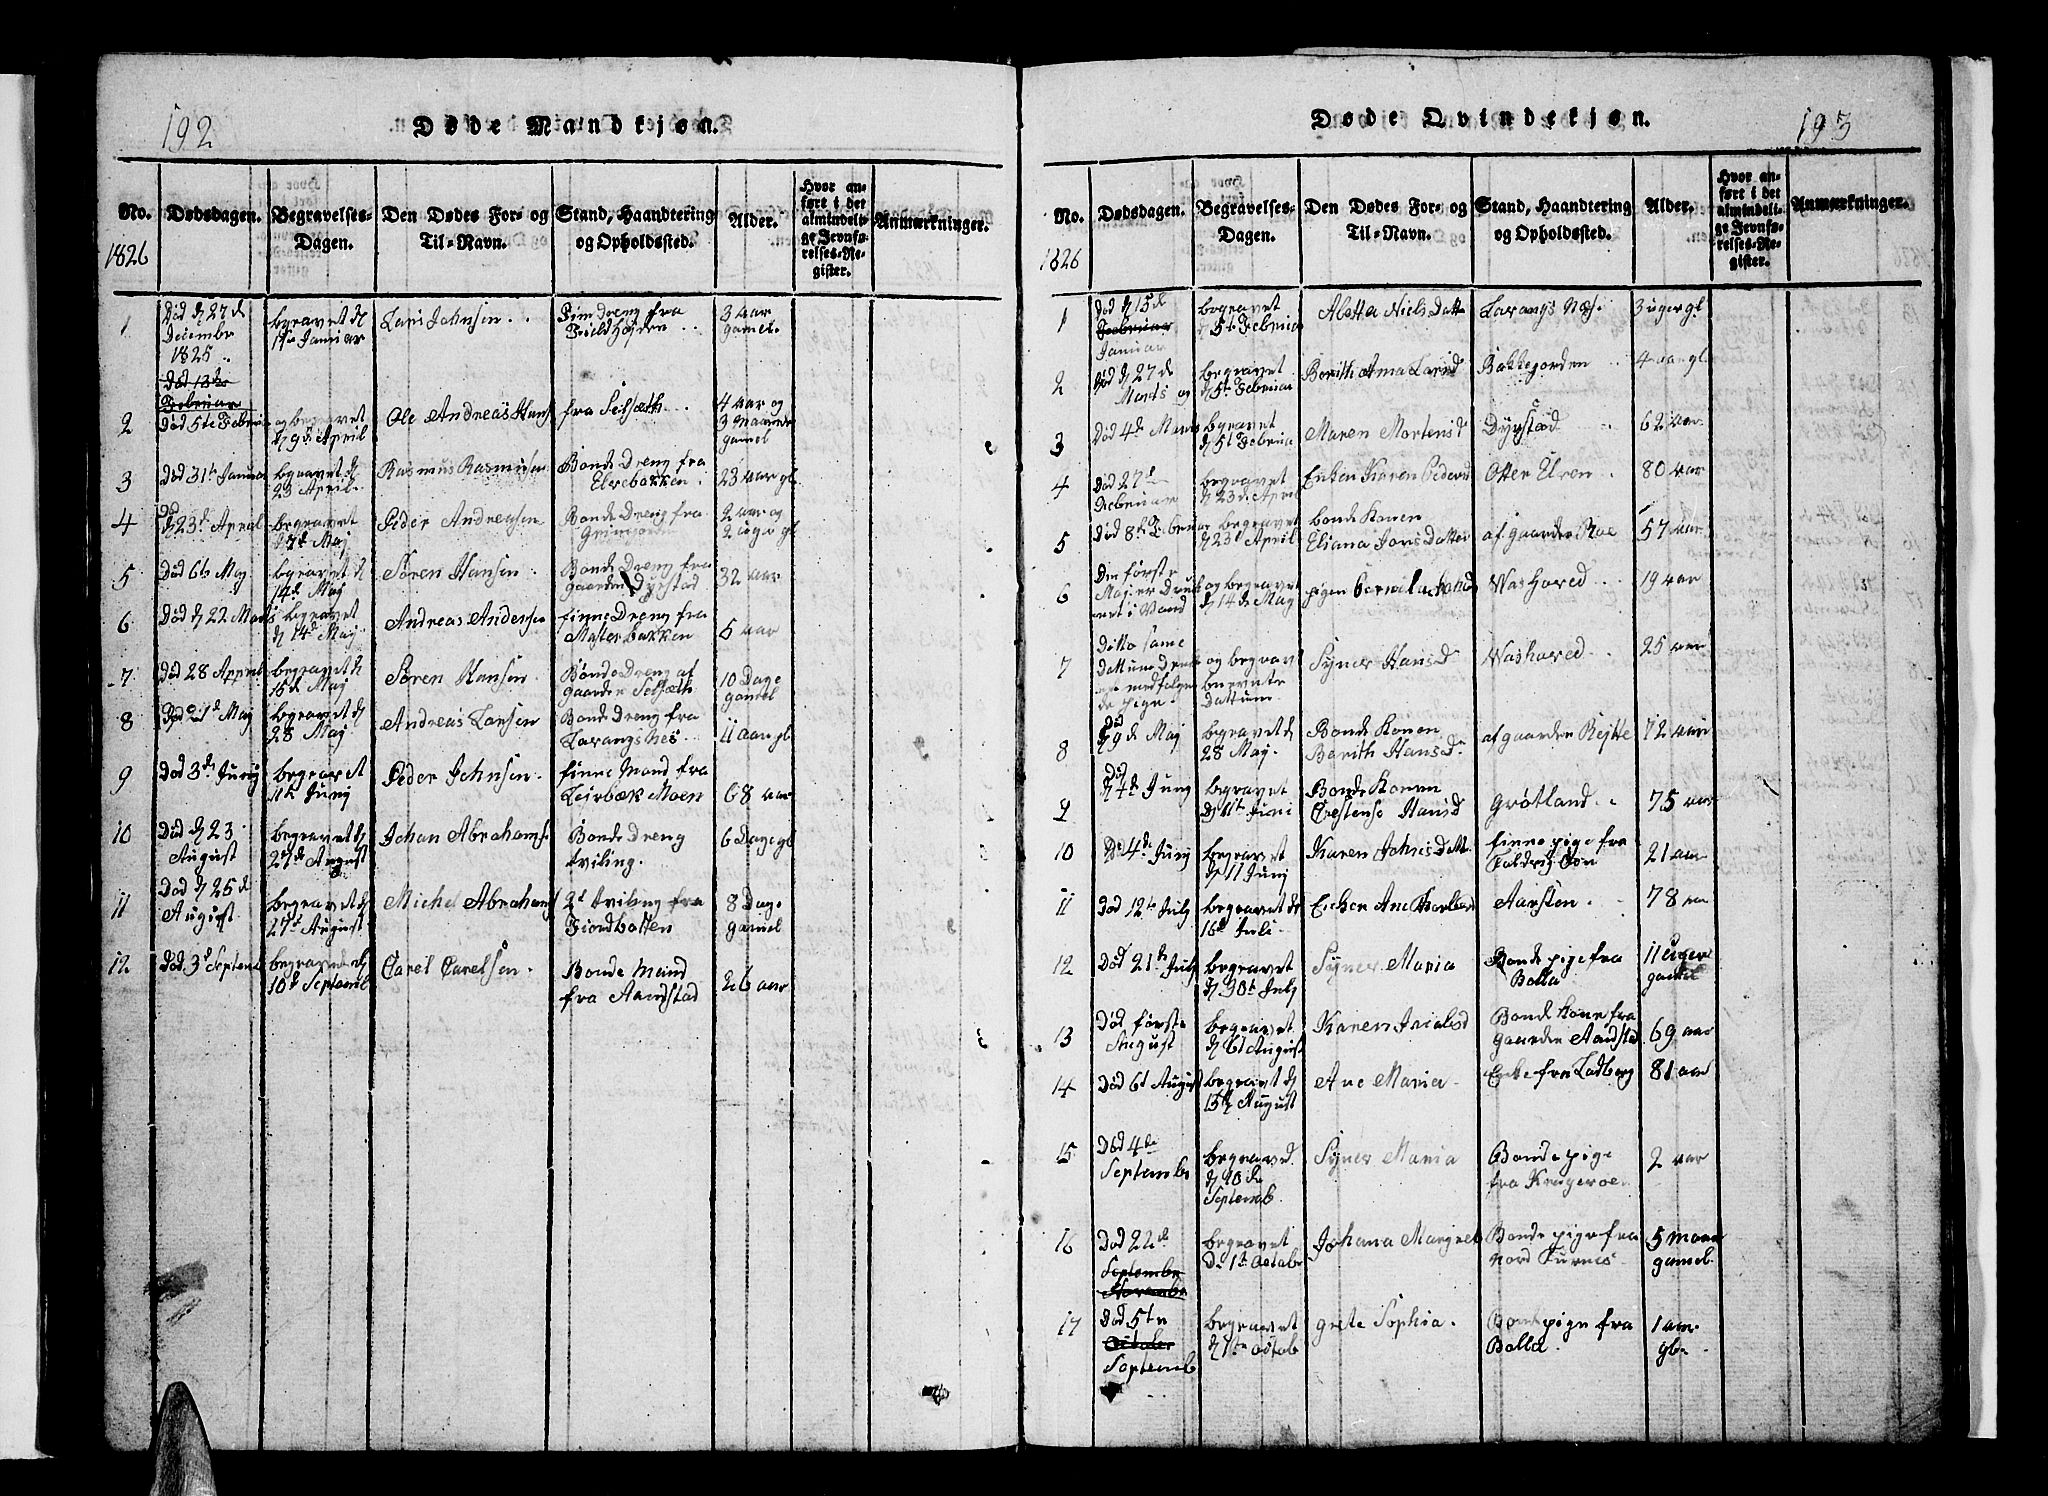 192
Døde Mandkjøn.
No.
Dødsdagen.
Begravelses-
Dagen.
Den Dødes For- og
Til-Navn.
Stand, Haandtering
og Opholdssted.
Alder.
Hvor an-
ført i det
almindeli-
ge Jevnfø-
relses-Re-
gister.
Anmærkninger.
1826
1
Død d 27de
Decembr
1825
begravet d
1te Januar
Lars Johnsen
Dreng fra
3 aar
gamel
Død 13de
Februar
2
Død 5te Februar
og begravet
d 9de April
Ole Andreas Hans
fra Selsæth
4 aar og
3 maaneder
gamel
3
Død 31te Januar
begravet d
23 April
Rasmus Rasmusen
Bonde Dreng fra
Elvebakken
23 aar gl
4
Død
d 23de April
begravet
d 7de Maj
Peder Andreasen
Bonde Dreng fra
2 aar og
2 uge gl
5
Død 6te Maj
begravet d
14de Maj
Søren Hansen
Bonde Dreng fra
Gaarden Dyrstad
32 aar
6
Død d 22 Marts
begravet
d 14de Maj
Andreas Andersen
finne Dreng fra
Møsterbakken
5 aar
7
Død 28 Appril
begravet d
15de Maj
Søren Hansen
Bonde Dreng af
gaarden Selsæth
10 Dage
gamel
8
Død 21de Maj
begravet d
28 Maj
Andreas Larsen
Bonde Dreng fra
Lavangsnes
11 aar gl
9
Død 3de Junij
begravet
11te Junij
Peder Johnsen
finne Mand fra
Leirbæk Moen
68 aar
10
Død d 23
August
begravet d
27de August
Johan Abrahams
Bonde Dreng
tviling.
6 Dage gl
11
Død d 25de
August
begravet d
27de August
Michel Abrahams
2d tviling fra
Fiordbotten
8 Dage
gamel
12
Død 3d Septemb
begravede d
10de Septemb
Carel Carelsen
Bonde Mand
fra Aandstad
26 aar
Døde Qvindekjøn.
193
No.
Dødsdagen.
Begravelses-
Dagen.
Den Dødes For- og
Til-Navn.
Stand, Haandtering
og Opholdssted.
Alder.
Hvor an-
ført i det
almindeli-
ge Jevnfø-
relses-Re-
gister.
Anmærkninger.
1826
1
Død d 15de
Februar
Januar
begravet
5te Februar
Aletta Niels Datter
Lavangs Næs
3 uger gl
2
Død 27de
Marts og
begravet
d 5te Februar
Berith Anna Larsd
Bakkejorden
4 aar gl
3
Død 4de Marts
begravet
d 5t Februar
Maren Mortensd
Dyrstad
62 aar
4
Død 27de
Februar
begravet
d 23de April
Enken Karen Pedersd
Otter Elven
80 aar
5
Død 8de Februar
begravet
d 23de April
bonde Konen
Eliana Jonsdatter
af gaarden Roe
57 aar
6
Den første
Maj er Druk
net i Vand
og begravet
d 14de Maj
pigen
Washoved
19 aar
7
Ditto same
Dattum Druk
medfølgen
de pige
og begrav
benevnte
Dattum
Synev Hansd
Washoved
25 aar
8
Død
d 9de Maj
begravet d
28 Maj.
Bonde Konen
Berith Hansd
af gaarden Rejtte
72 aar
9
Død
d 4de Junij
begravet
d 11te Juni
Bonde Konen
Crestense Hansd
Grøtland
75 aar
10
De 4de Junij
begravet
d 11 Junij
Karen Johnsdatt
finne pige fra
21 aar
11
Død 12te July
begravet d
16de Juli
Enken Ane
Aarsten
78 aar
12
Død 21de July
begravet
d 30te July
Synev Maria
Bonde pige fra
Bolla
11 uger
gamel
13
Død første
August
begravet
d 6te August
Karen
Bonde Kone fra
gaarden Aandstad
69 aar
14
Død 6t August
begravet d
13de August
Ane Maria
Enke fra Ladberg
81 aar
15
Død 4de
Septembr
begraved
d 10de
Septemb
Synev Maria
Bonde pige
fra Krøgeroe
2 aar
16
Død 22de
Septembr
Novembr
begravet
d 1te Octobr
Johana Margret
Bonde pige fra
Nord Furnes
5 maan
gamel
17
Død 5te
October
Septemb
begravet
d 1te Octob
grete Sophia
Bonde pige fra
Bolla
1 aar
gl